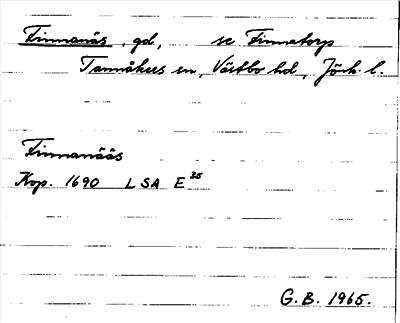 Finnanäs, gd, se Finnatorp
Tannåkers sn, Västbo hd, Jönk. l.
Finnanääs
Kop. 1690 LSA E 35
G.B. 1965.